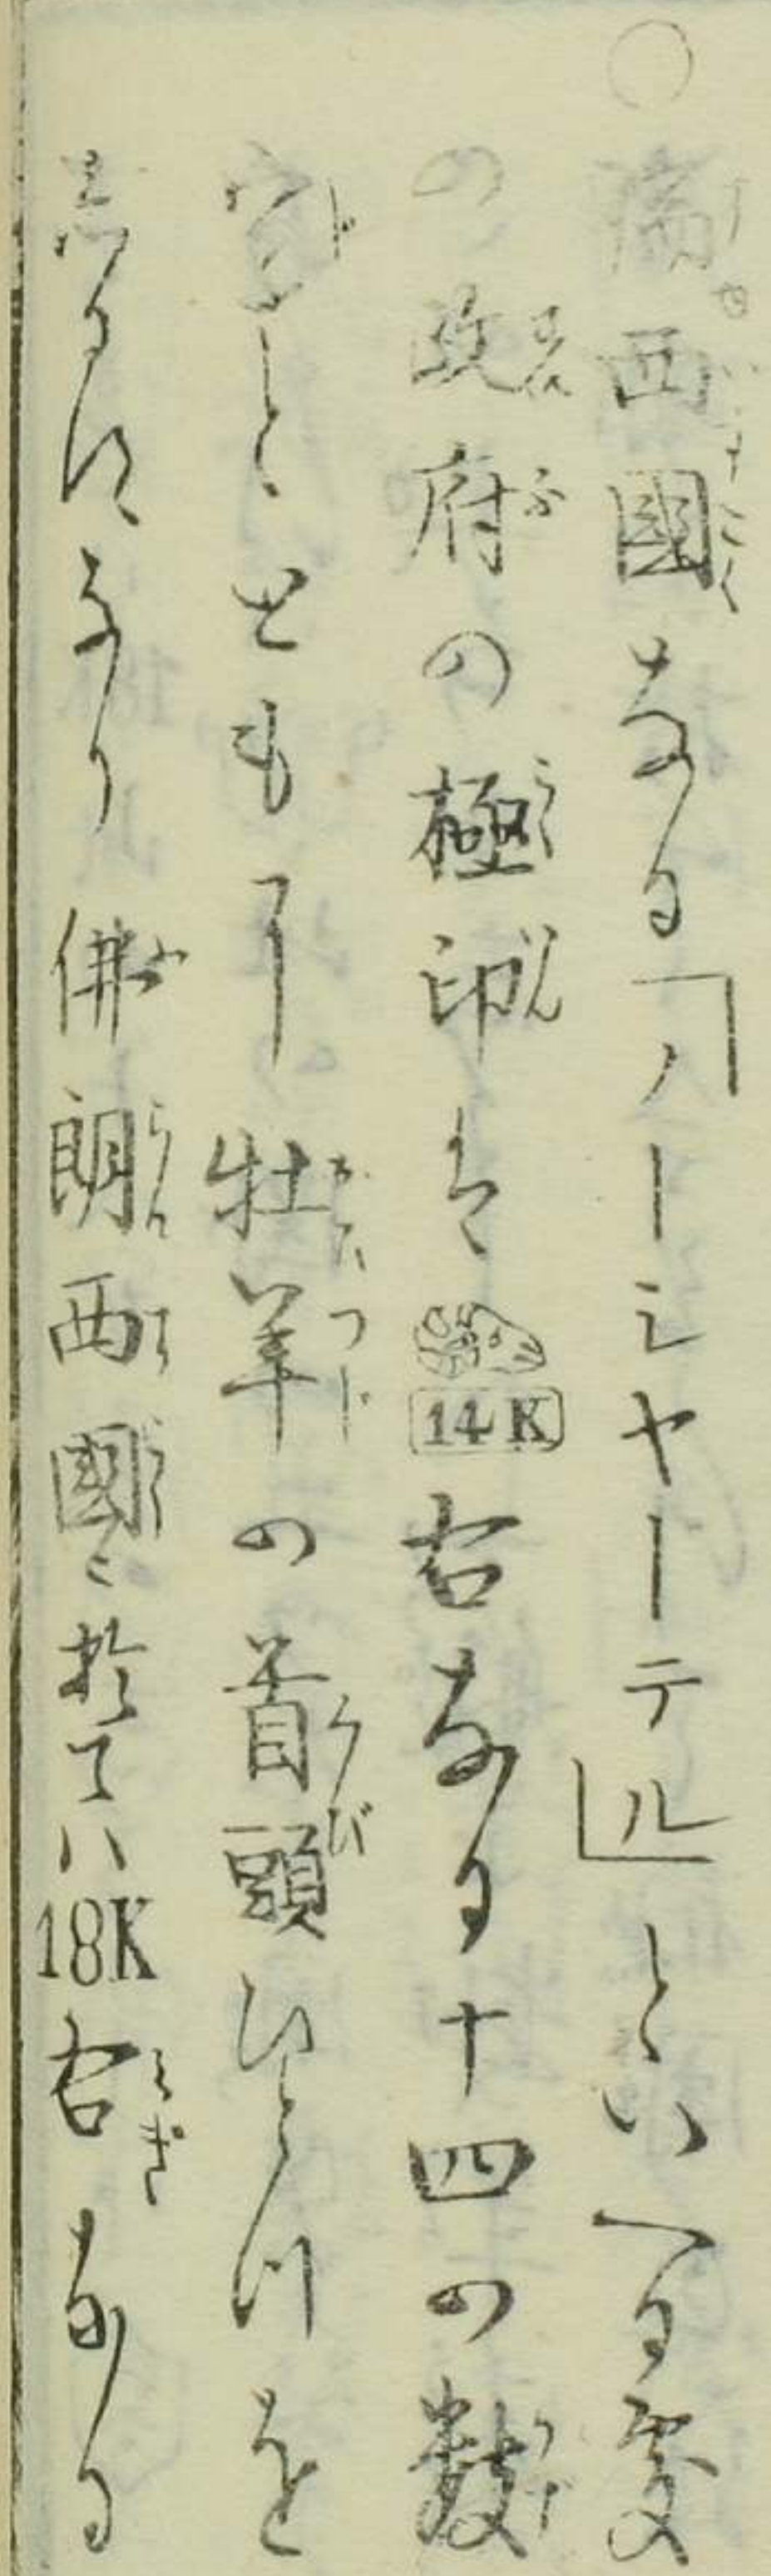 ○瑞西國なる「ハーミヤーテル」といへる處
の政府の極印は 14K 右なる十四の数
字とともに牡羊の首頭ひとつを
志るすなり佛朗西國に於てハ18K右なる